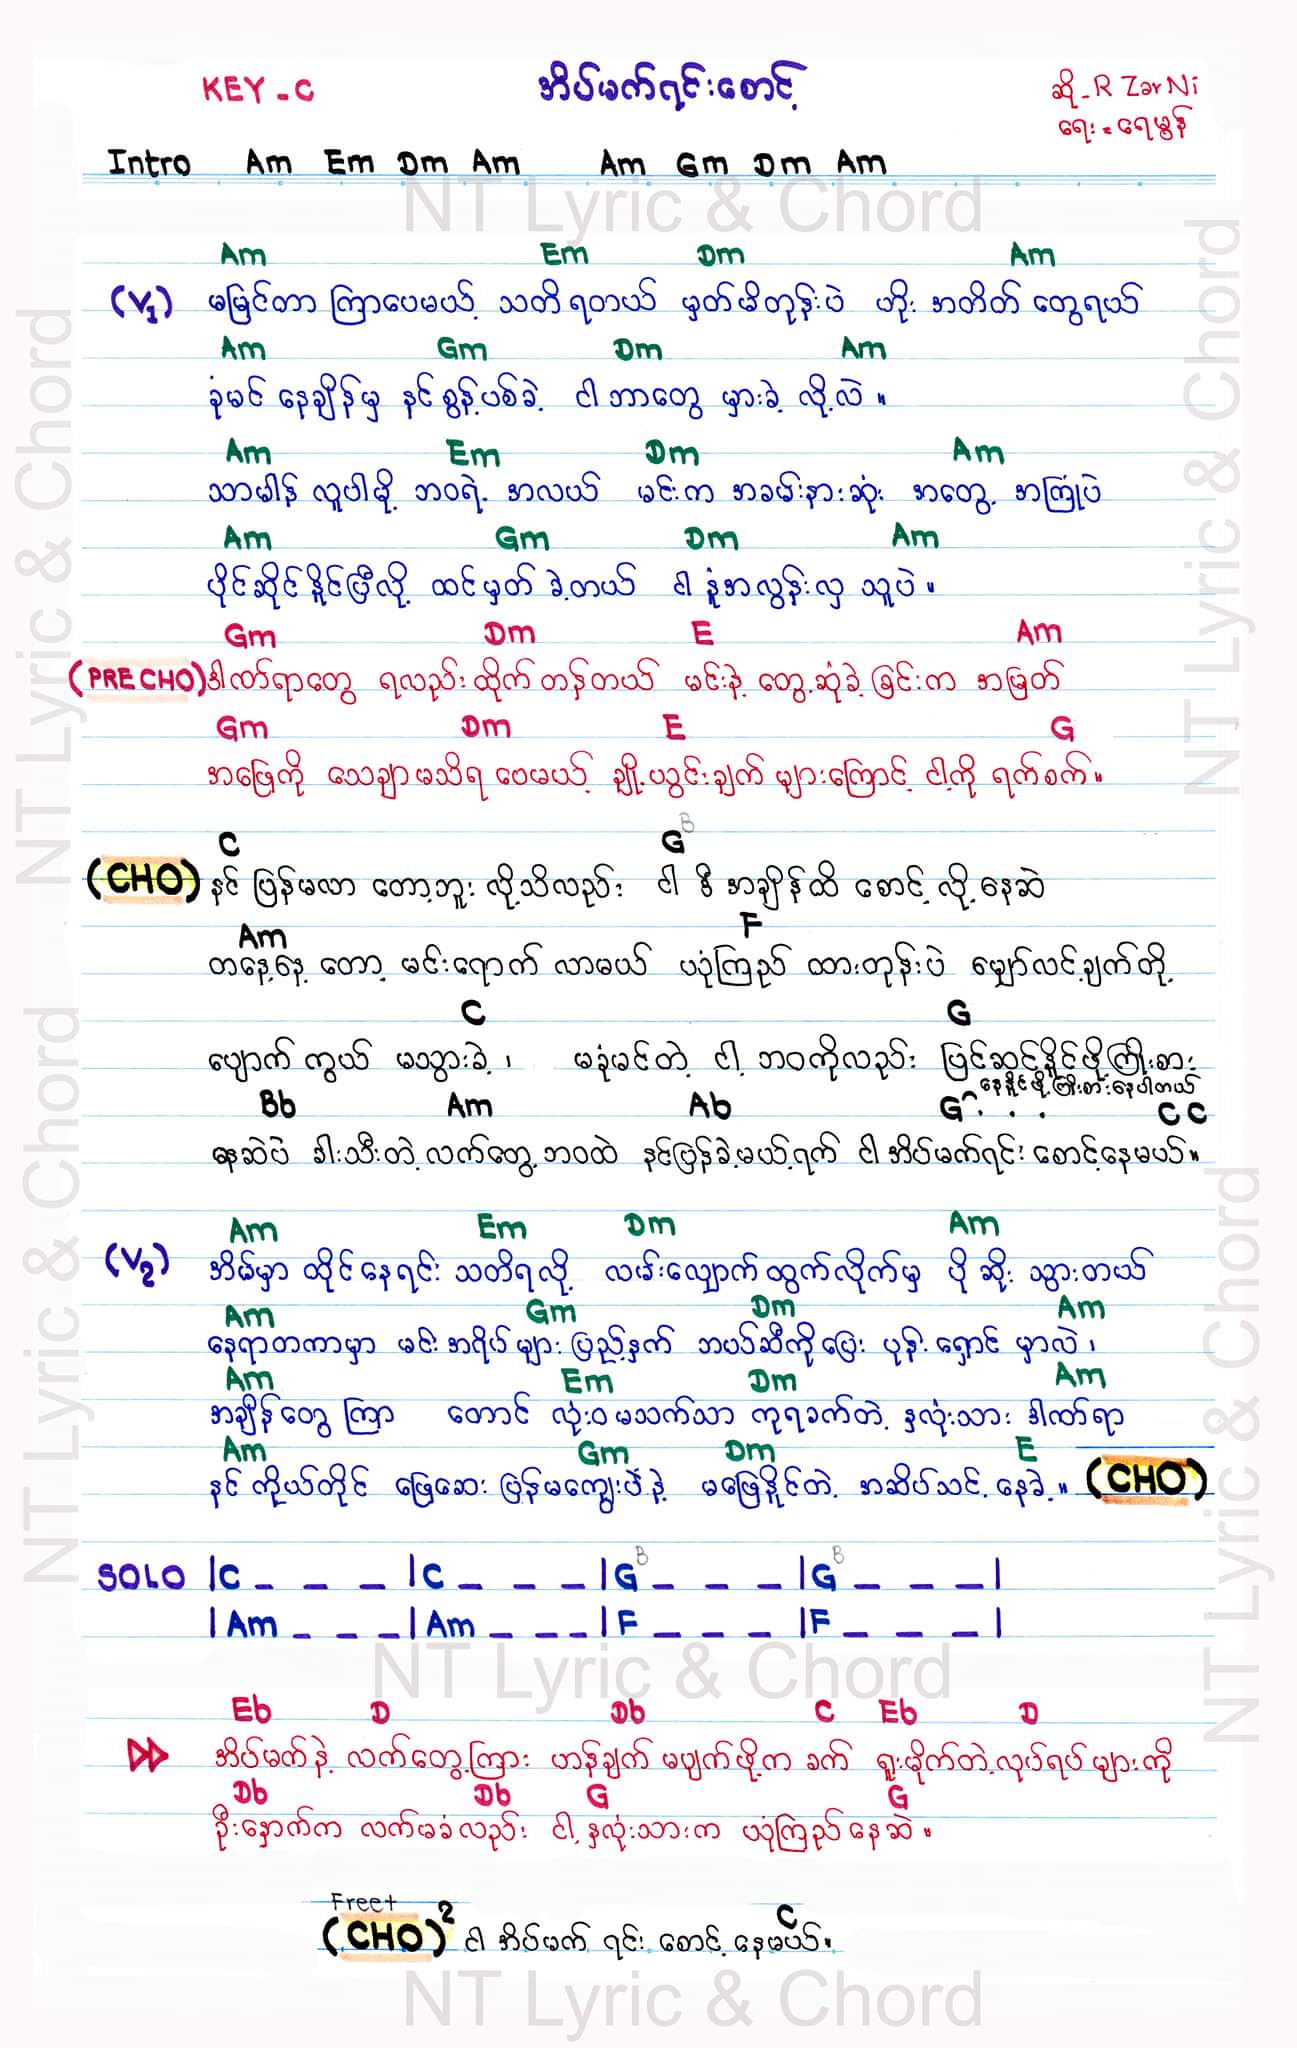 KEY - C
အိပ်မက်ရင်းစောင့်
ဆို - R Zar Ni
ရေး = ရေမွန်
Intro Am Em Dm Am Am Gm Dm Am
NT Lyric & Chord
Am Em Dm Am
(V1) မမြင်တာ ကြာပေမယ့် သတိရတယ် မှတ်မိတုန်းပဲ ဟိုး အတိတ် တွေရယ်
Am Gm Dm Am
ခုံမင် နေချိန်မှ နင်စွန့်ပစ်ခဲ့ ငါ ဘာတွေ မှားခဲ့ လို့လဲ ။
Am Em Dm Am
သာမါန် လူပါမို့ ဘဝရဲ့ အလယ် မင်းက အခမ်းနားဆုံး အတွေ့ အကြုံပဲ
Am Gm Dm Am
ပိုင်ဆိုင်နိူင်ပြီလို့ ထင်မှတ် ခဲ့တယ် ငါ နုံအလွန်းလှ သူပဲ ။
Gm Dm E Am
(PRE CHO) ဒါဏ်ရာတွေ ရလည်း ထိုက်တန်တယ် မင်းနဲ့ တွေ့ဆုံခဲ့ ခြင်းက အမြတ်
Gm Dm E G
အဖြေကို သေချာမသိရ ပေမယ့် ချိုးယွင်းချက် များကြောင့် ငါ့ကို ရက်စက် ။
C G B
(CHO) နင် ပြန်မလာ တော့ဘူး လို့သိလည်း ငါ ဒီ အချိန်ထိ စောင့် လို့ နေဆဲ
Am F
တနေ့နေ့ တော့ မင်းရောက် လာမယ် ယုံကြည် ထားတုန်းပဲ မျှော်လင့်ချက်တို့
C G
ပျောက်ကွယ် မသွားခဲ့ ၊ မခုံမင်တဲ့ ငါ့ ဘဝကိုလည်း ပြင်ဆင်နိူင်ဖို့ကြိုးစား
နေနိူင်ဖို့ ကြိုးစားနေပါတယ်
Bb Am Ab G . . . C C
နေဆဲပဲ ဒါးသီးတဲ့ လက်တွေ့ဘဝထဲ နင်ပြန်ခဲ့မယ့်ရက် ငါ အိပ်မက်ရင်း စောင့်နေမယ် ။
Am Em Dm Am
(V2) အိမ်မှာ ထိုင်နေရင်း သတိရလို့ လမ်းလျှောက်ထွက်လိုက်မှ ပို ဆိုး သွားတယ်
Am Gm Dm Am
နေရာတကာမှာ မင်း အရိပ်များ ပြည့်နှက် ဘယ်ဆီကိုပြေး ပုန်း ရှောင် မှာလဲ ၊
Am Em Dm Am
အချိန်တွေ ကြာ တောင် လုံးဝ မသက်သာ ကုရခက်တဲ့ နှလုံးသား ဒါဏ်ရာ
Am Gm Dm E
နင် ကိုယ်တိုင် ဖြေဆေး ပြန်မကျွေးပဲနဲ့ မဖြေနိူင်တဲ့ အဆိပ်သင့် နေခဲ့ ။ (CHO)
SOLO |C _ _ _ |C _ _ _ |G B _ _ _ |G B _ _ _ |
|Am _ _ _ |Am _ _ _ |F _ _ _ |F _ _ _ |
NT Lyric & Chord
Eb D Db C Eb D
အိပ်မက်နဲ့ လက်တွေ့ကြား ဟန်ချက် မပျက်ဖို့က ခက် ရူးမိုက်တဲ့ လုပ်ရပ် များကို
Db Db G G
ဦးနှောက်က လက်မခံလည်း ငါ့ နှလုံးသားက ယုံကြည်နေဆဲ ။
Free+
(CHO)2 C
ငါ အိပ်မက် ရင်း စောင့် နေမယ် ။
NT Lyric & Chord
NT Lyric & Chord
NT Lyric & Chord
NT Lyric & Chord
NT Lyric & Chord